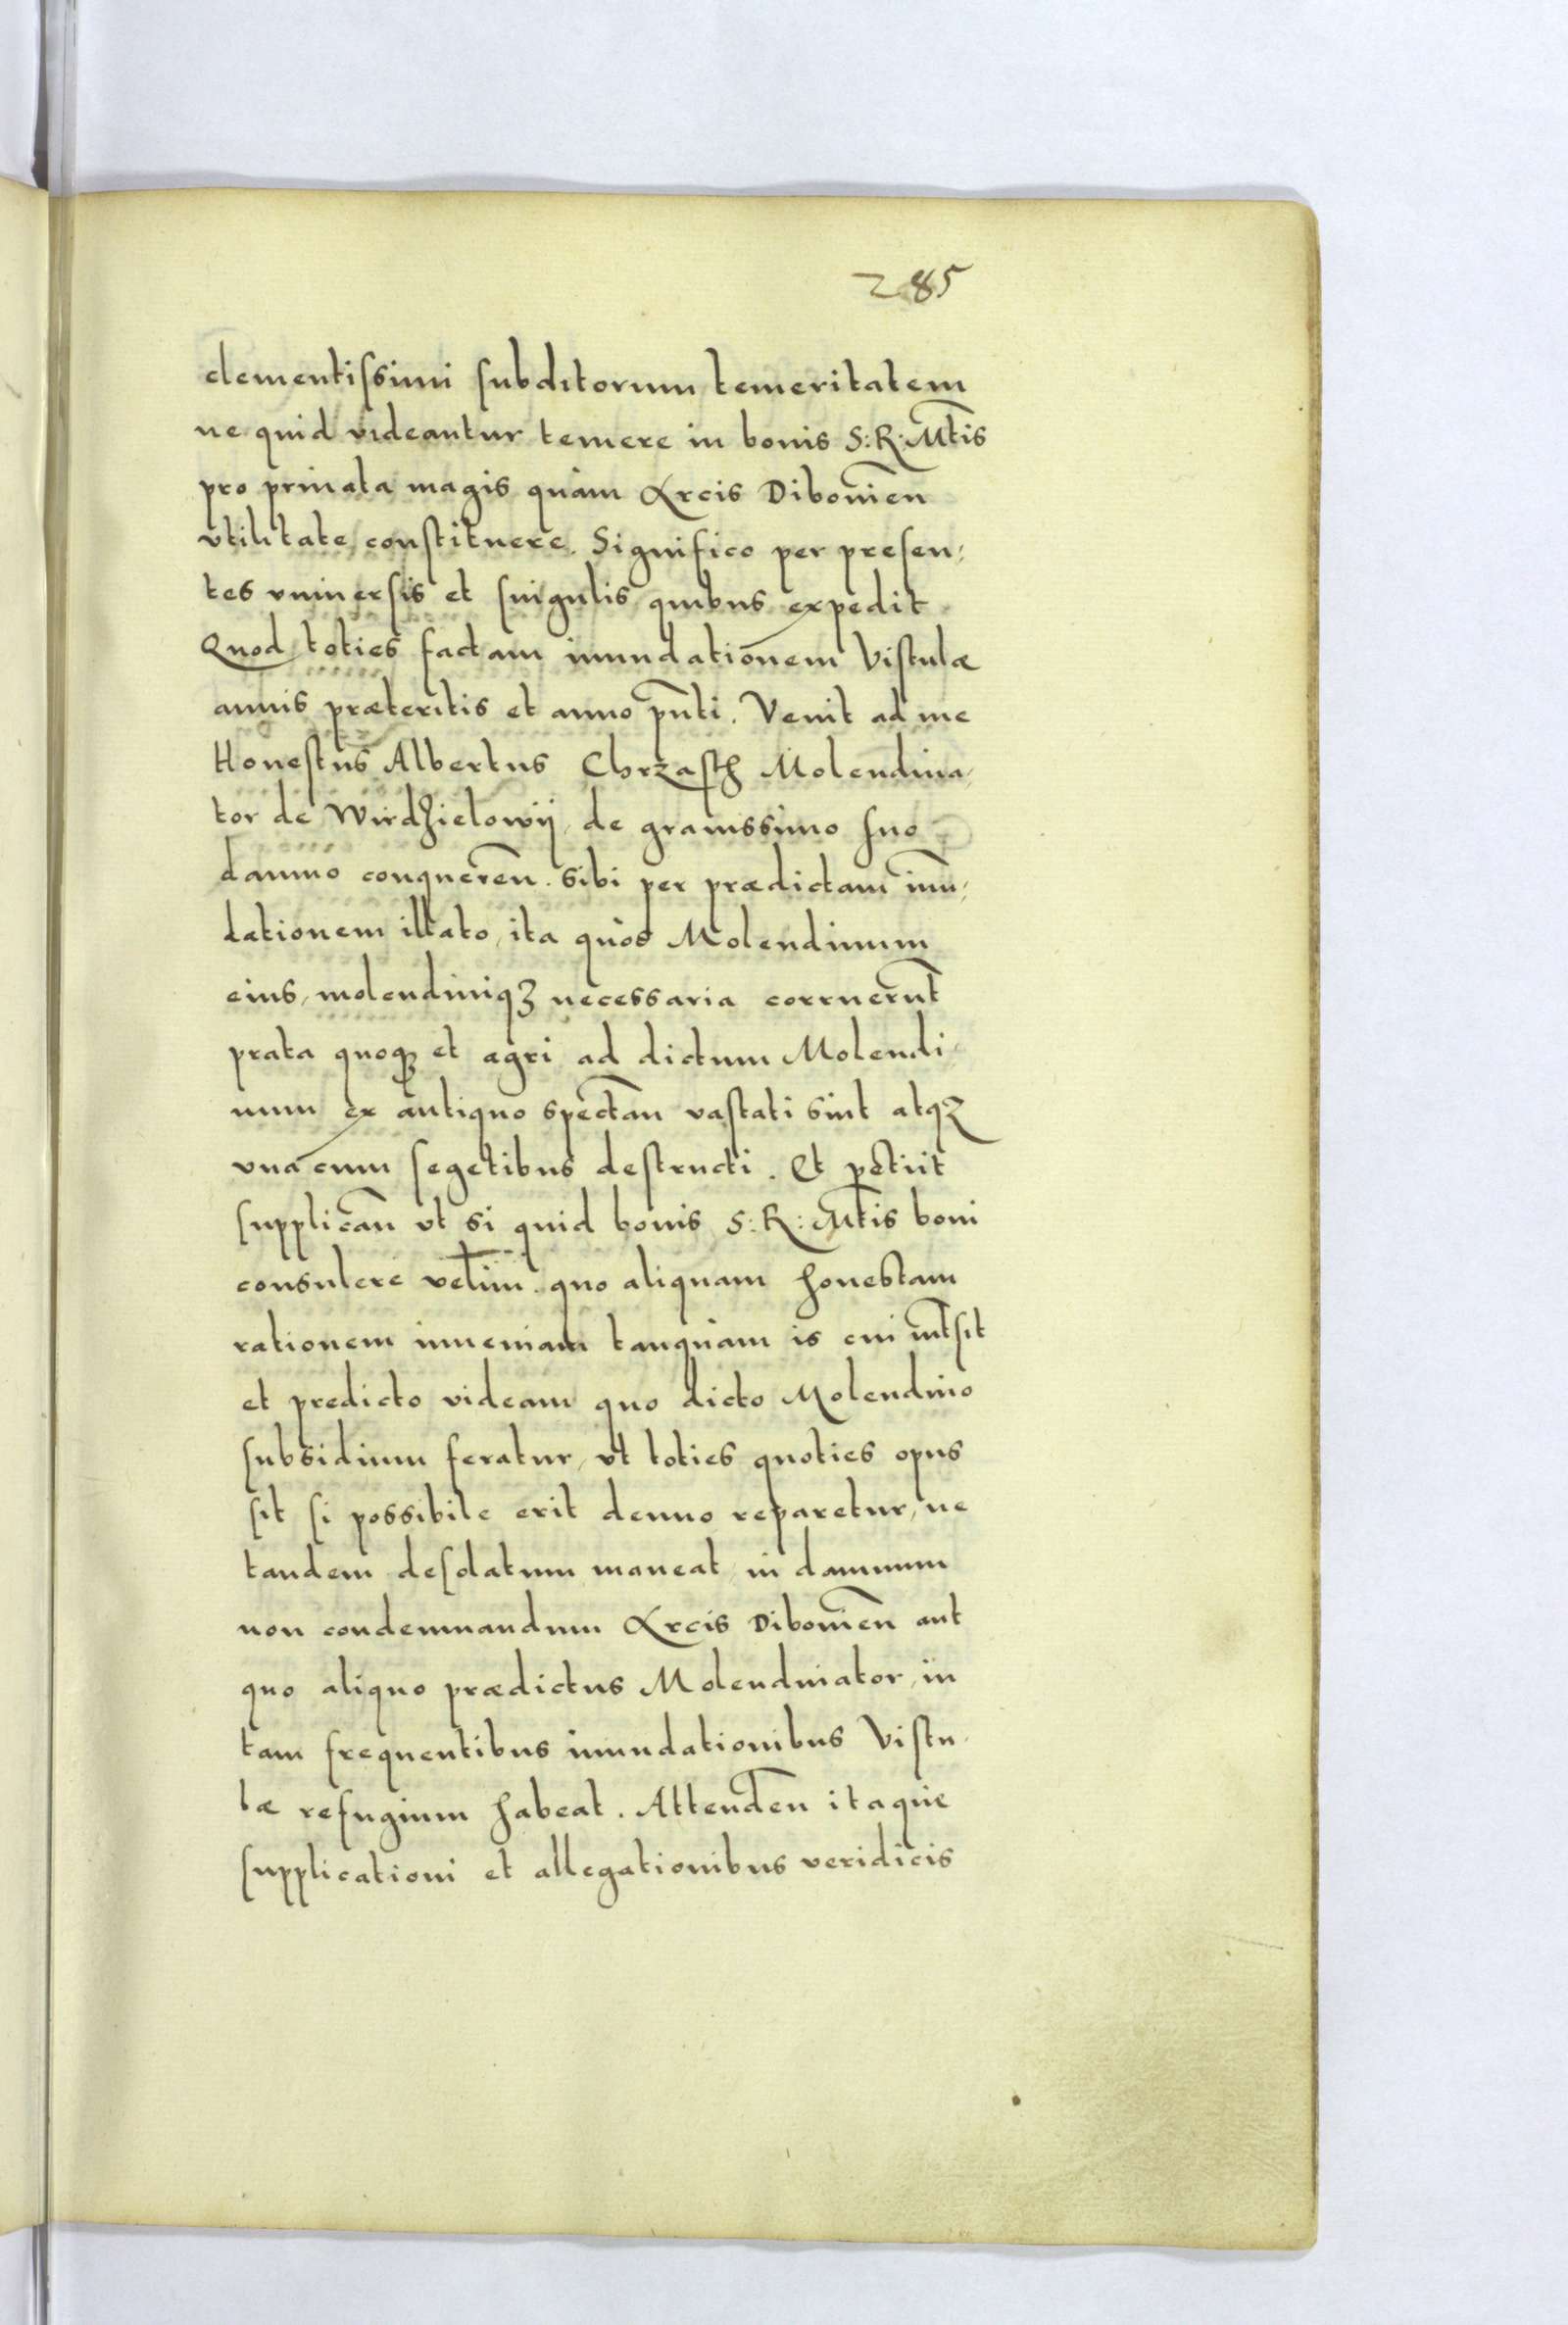 285
clementissimi subditorum temeritatem
ne quid videantur temere in bonis S: R: Mtis
pro priuata magis quàm Arcis Dibouien̄
vtilitate constituere. Significo per presen:
tes vniuersis et singulis quibus expedit
Quod toties factam inundationem Vistulæ
annis præteritis et anno pn̄ti. Venit ad me
Honestus Albertus Chrzasth Molendina,
tor de Wirdzielowij, de grauissimo suo
damno conqueren̄. sibi per prædictam inū,
dationem illato, ita quòd Molendinum
eius, molendiniqʒ necessaria corruerūt
prata quoqʒ et agri ad dictum Molendi,
num ex antiquo spectan̄ vastati sint atqʒ
vna cum segetibus destructi. Et petiit
supplican̄ vt si quid bonis S: R: Mtis boni
consulere velim. quo aliquam honestam
rationem inueniam tanquàm is cui int̄sit
et predicto videam quo dicto Molendino
subsidium feratur, vt toties quoties opus
sit si possibile erit denuo reparetur, ne
tandem desolatum maneat, in damnum
non condemnandum Arcis Dibouien̄ aut
quo aliquo prædictus Molendinator, in
tam frequentibus inundationibus Vistu,
læ refugium habeat. Attenden̄ itaque
supplicationi et allegationibus veridicis